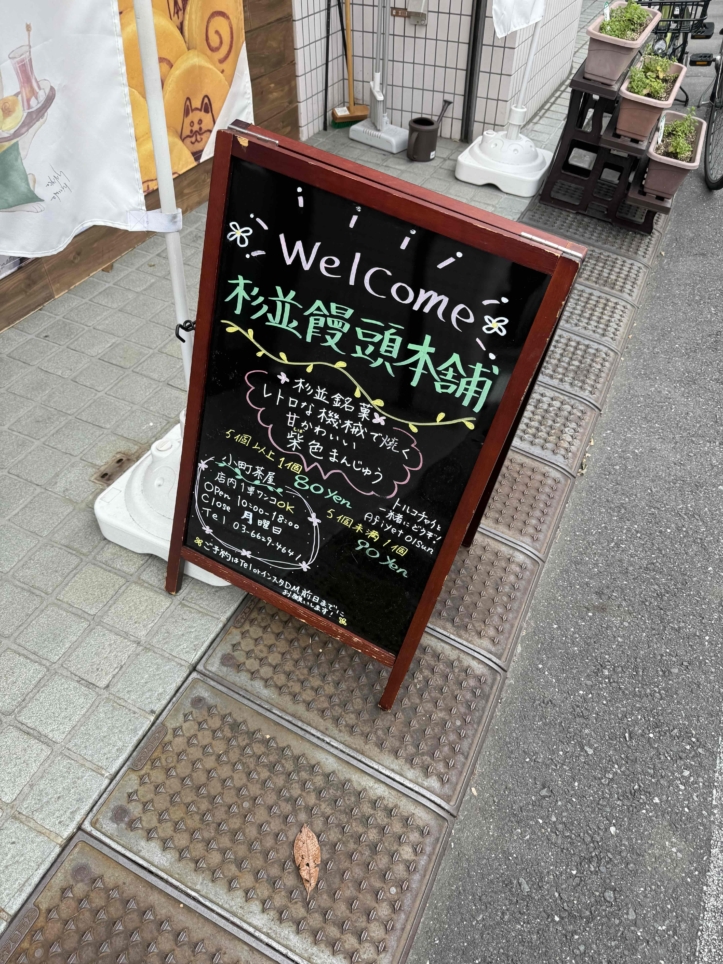 Welcome
杉並饅頭本舗
杉並銘菓
レトロな機械で焼く
甘かわいい
柴色まんじゅう
5個以上1個
80yen
小町茶屋
店内1串ワンコOK
Open 10:00-18:00
Close 月曜日
Tel 03-6629-4641
トルコチャイと
一緒にどうぞ!
Afiyet olsun
5個未満1個
90yen
ご予約はTelorインスタDM前日までに
お願いします!